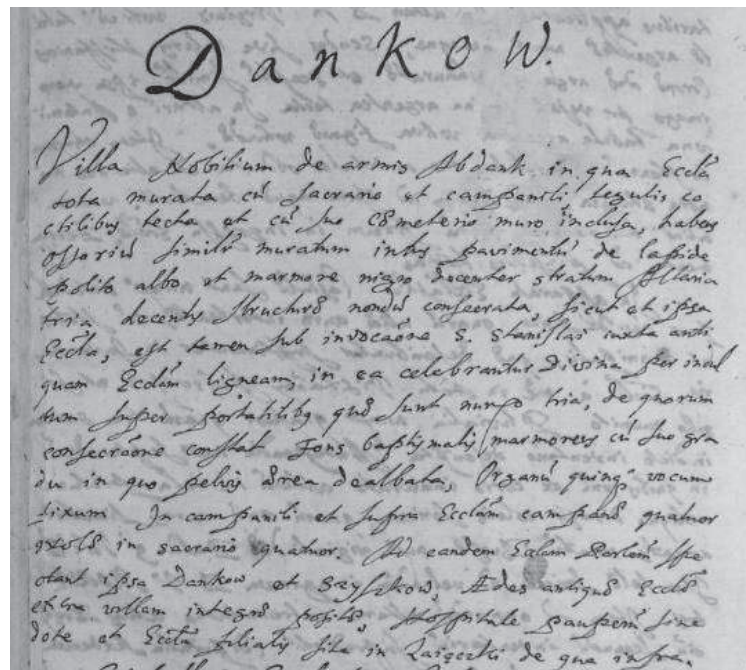 Dankow.
Villa Nobilium de armis Abdank in qua Eccła
tota murata cũ sacrario et campanili, tegulis co
ctilibus tecta et cũ suo cœmeterio muro inclusa, habens
ossoriũ similir muratum intus pavimentũ de lapide
polito albo et marmore nigro decenter stratum Altaria
tria decentis structuræ nondũ consecrata, sicut et ipsa
Eccła, est tamen sub invocaõne S. Stanislai iuxta anti
quam Eccłam ligneam, in ea celebrantur Divina per indul
tum super portatilibq quæ sunt nuṽo tria, de quorum
consecraõne constat Fons baptismatis marmoreus cũ suo gra
du in quo pelvis ærea dealbata, Organũ quinq vocum
fixum In campanili et supra Eccłam campanæ quatuor
in sacrario quatuor. Ad eandem Ecłam Parlem̃ spe
ctant ipsa Dankow et Rzysikow, Ædes antiquæ Eccłæ
extra villam integræ positæ, Hospitale pauperũ sine
dote et Eccła filialis sita in Zaiączki de qua infra,